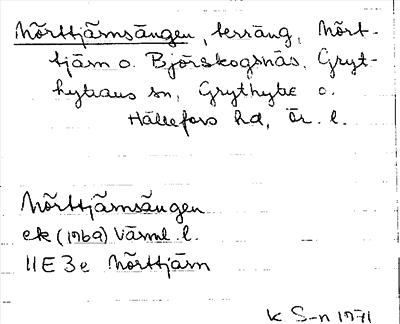 Mörttjärnsängen, terräng, Mört-
tjärn o. Björskogsnäs, Gryt-
hyttans sn, Grythytte o.
Hällefors hd, Ör. l.
Mörttjärnsängen
ek (1969) Värml. l.
11E 3e Mörttjärn
K S-n 1971